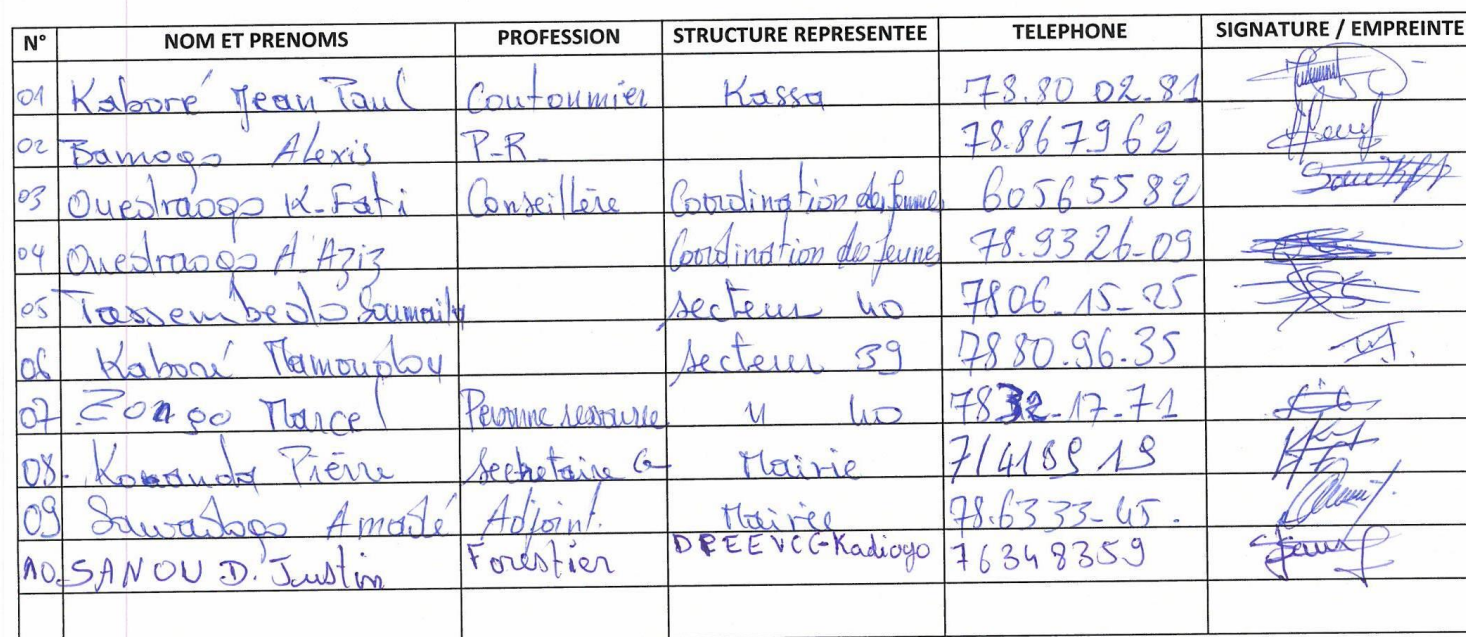 N° NOM ET PRENOMS PROFESSION STRUCTURE REPRESENTEE TELEPHONE SIGNATURE / EMPREINTE
01 Kaboré Jean Paul Coutoumier Kassa 78.80 02.81
02 Bamogo Alexis P-R_ 78.867962
03 Ouedraogo K-Fati Conseillère Coordination des femmes 60565582
04 Ouedraogo A. Aziz Coordination des jeunes 78.93 26-09
05 Tassembedo Soumaila secteur 40 7806_15_25
06 Kaboré secteur 39 7880.96.35
07. Zongo Marcel Personne ressource 11 40 7832-17-71
08. Pierre Secretaire G Mairie 71418919
09 Sawadogo Amadé Adjoint. Mairie 78.6333-45.
10. SANOU D. Justin Forestier DREEVCC-Kadiogo 76348359